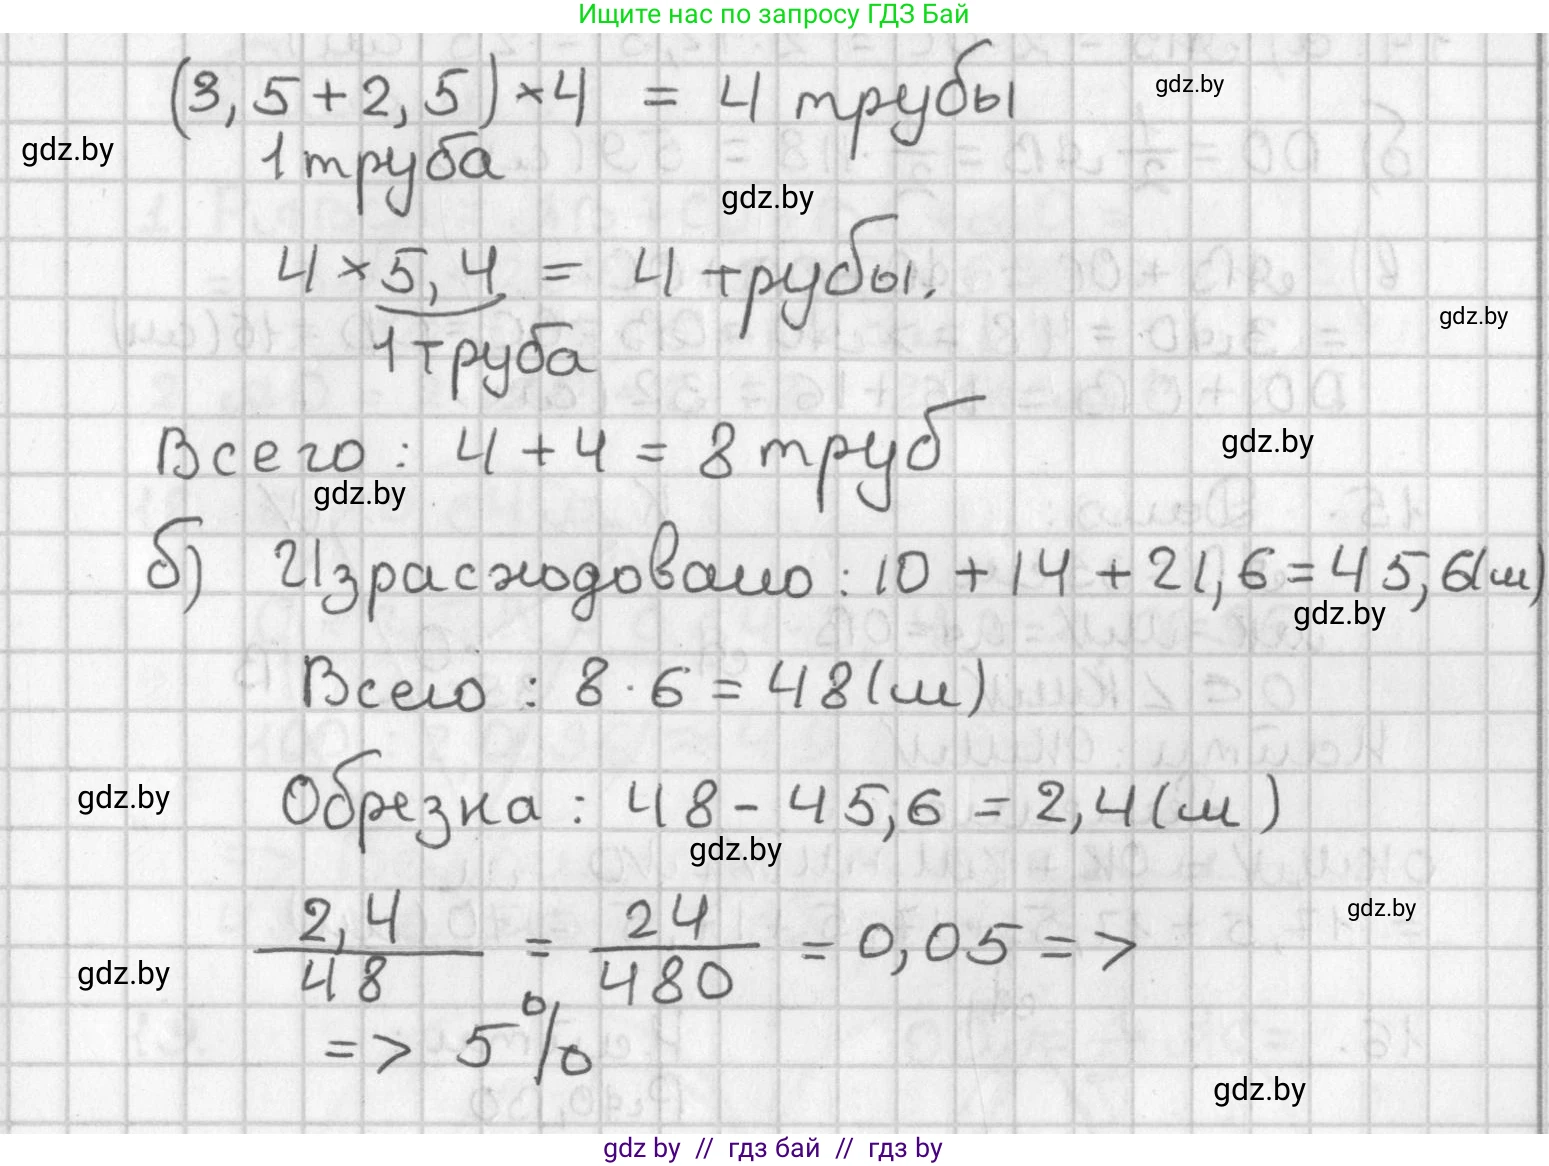 Ищите нас по запросу ГДЗ Бай
(3,5+2,5)×4 = 4 трубы
gdz.by
gdz.by
1 труба
gdz.by
4×5,4 = 4 трубы.
gdz.by
1 труба
Всего: 4+4 = 8 труб
gdz.by
gdz.by
б) Израсходовано: 10+14+21,6=45,6(м)
gdz.by
Всего: 8·6=48(м)
gdz.by
Обрезка: 48-45,6=2,4(м)
gdz.by
2,4/48 = 24/480 = 0,05 =>
gdz.by
gdz.by
=> 5%
gdz.by
gdz by // гдз бай // гдз by